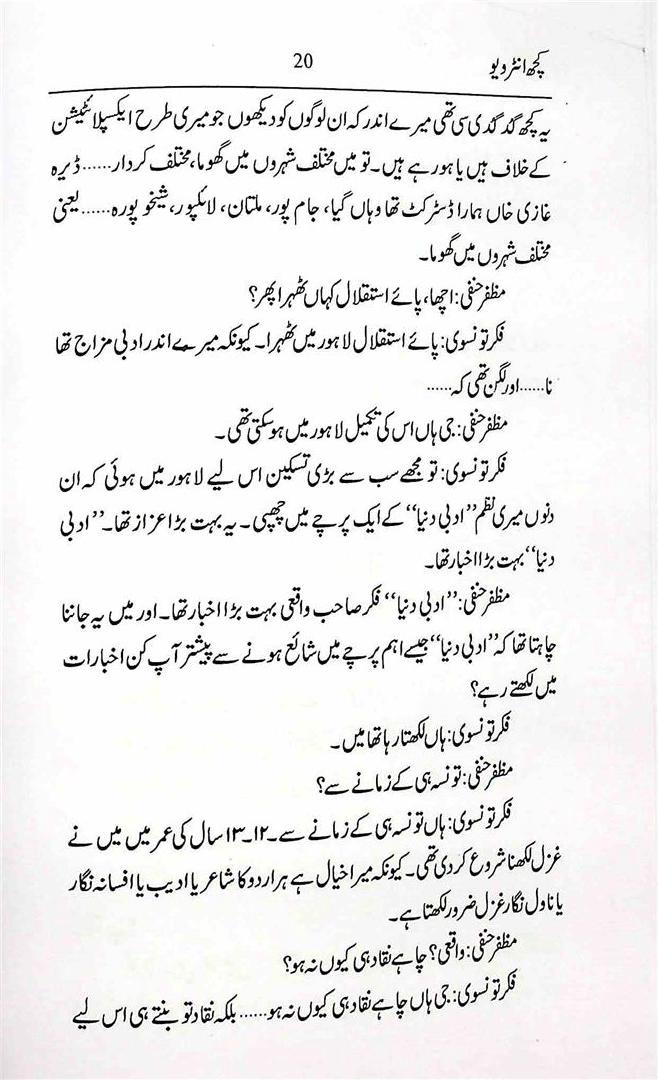 کچھ انٹرویو 20
یہ کچھ گدگدی سی تھی میرے اندر کہ ان لوگوں کو دیکھوں جو میری طرح ایکسپلائٹیشن
کے خلاف ہیں یا ہو رہے ہیں۔ تو میں مختلف شہروں میں گھوما، مختلف کردار...... ڈیرہ
غازی خاں ہمارا ڈسٹرکٹ تھا وہاں گیا، جام پور، ملتان، لائلپور، شیخوپورہ...... یعنی
مختلف شہروں میں گھوما۔
مظفر حنفی: اچھا، پائے استقلال کہاں ٹھہرا پھر؟
فکر تونسوی: پائے استقلال لاہور میں ٹھہرا۔ کیونکہ میرے اندر ادبی مزاج تھا
نا...... اور لگن تھی کہ......
مظفر حنفی: جی ہاں اس کی تکمیل لاہور میں ہو سکتی تھی۔
فکر تونسوی: تو مجھے سب سے بڑی تسکین اس لیے لاہور میں ہوئی کہ ان
دنوں میری نظم ”ادبی دنیا“ کے ایک پرچے میں چھپی۔ یہ بہت بڑا اعزاز تھا۔ ”ادبی
دنیا“ بہت بڑا اخبار تھا۔
مظفر حنفی: ”ادبی دنیا“ فکر صاحب واقعی بہت بڑا اخبار تھا۔ اور میں یہ جاننا
چاہتا تھا کہ ”ادبی دنیا“ جیسے اہم پرچے میں شائع ہونے سے پیشتر آپ کن اخبارات
میں لکھتے رہے؟
فکر تونسوی: ہاں لکھتا رہا تھا میں۔
مظفر حنفی: تونسہ ہی کے زمانے سے؟
فکر تونسوی: ہاں تونسہ ہی کے زمانے سے۔ ۱۲۔۱۳ سال کی عمر میں میں نے
غزل لکھنا شروع کر دی تھی۔ کیونکہ میرا خیال ہے ہر اردو کا شاعر یا ادیب یا افسانہ نگار
یا ناول نگار غزل ضرور لکھتا ہے۔
مظفر حنفی: واقعی؟ چاہے نقاد ہی کیوں نہ ہو؟
فکر تونسوی: جی ہاں چاہے نقاد ہی کیوں نہ ہو...... بلکہ نقاد تو بنتے ہی اس لیے